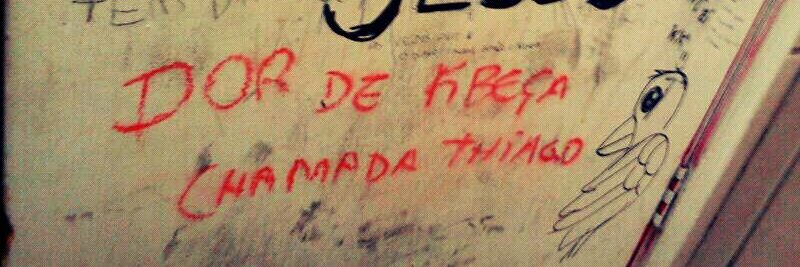 JESUS
DOR DE KBEÇA
CHAMADA THIAGO